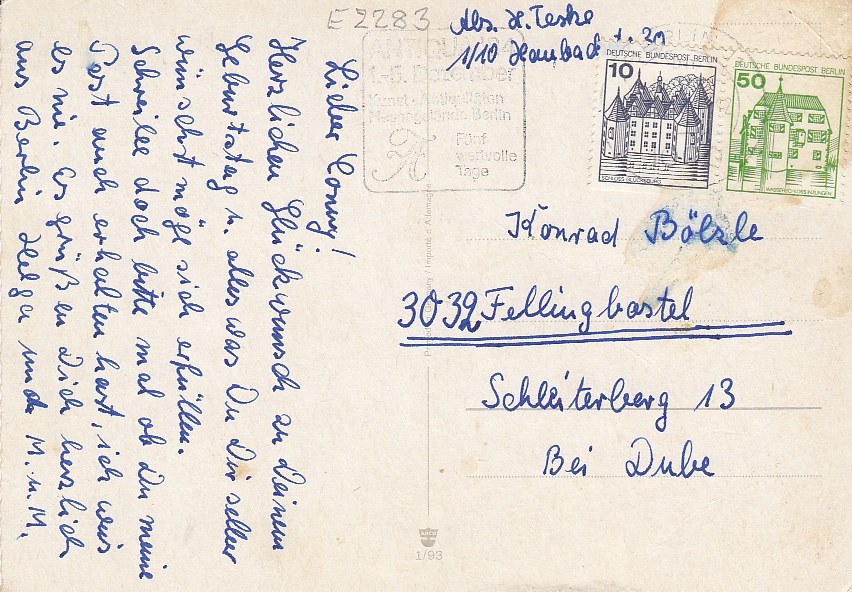 E2283
Abs. H. Teske
1/10 Hambach
BERLIN
1.-5. Dezember
Kunst + Antiquitäten
Messegelände Berlin
Fünf
wertvolle
Tage
DEUTSCHE BUNDESPOST BERLIN
10
SCHLOSS GLÜCKSBURG
DEUTSCHE BUNDESPOST BERLIN
50
WASSERSCHLOSS INZLINGEN
Lieber Conny!
Herzlichen Glückwunsch zu Deinem
Geburtstag u. alles was Du Dir selber
wünschst möge sich erfüllen.
Schreibe doch bitte mal ob Du meine
Post auch erhalten hast, ich weis
es nie. Es grüßen Dich herzlich
aus Berlin Helga und M. u. M.
Konrad Bölzle
3032 Fellingbostel
Schleiterberg 13
Bei Dube
Imported / Importé d'Allemagne
1/93